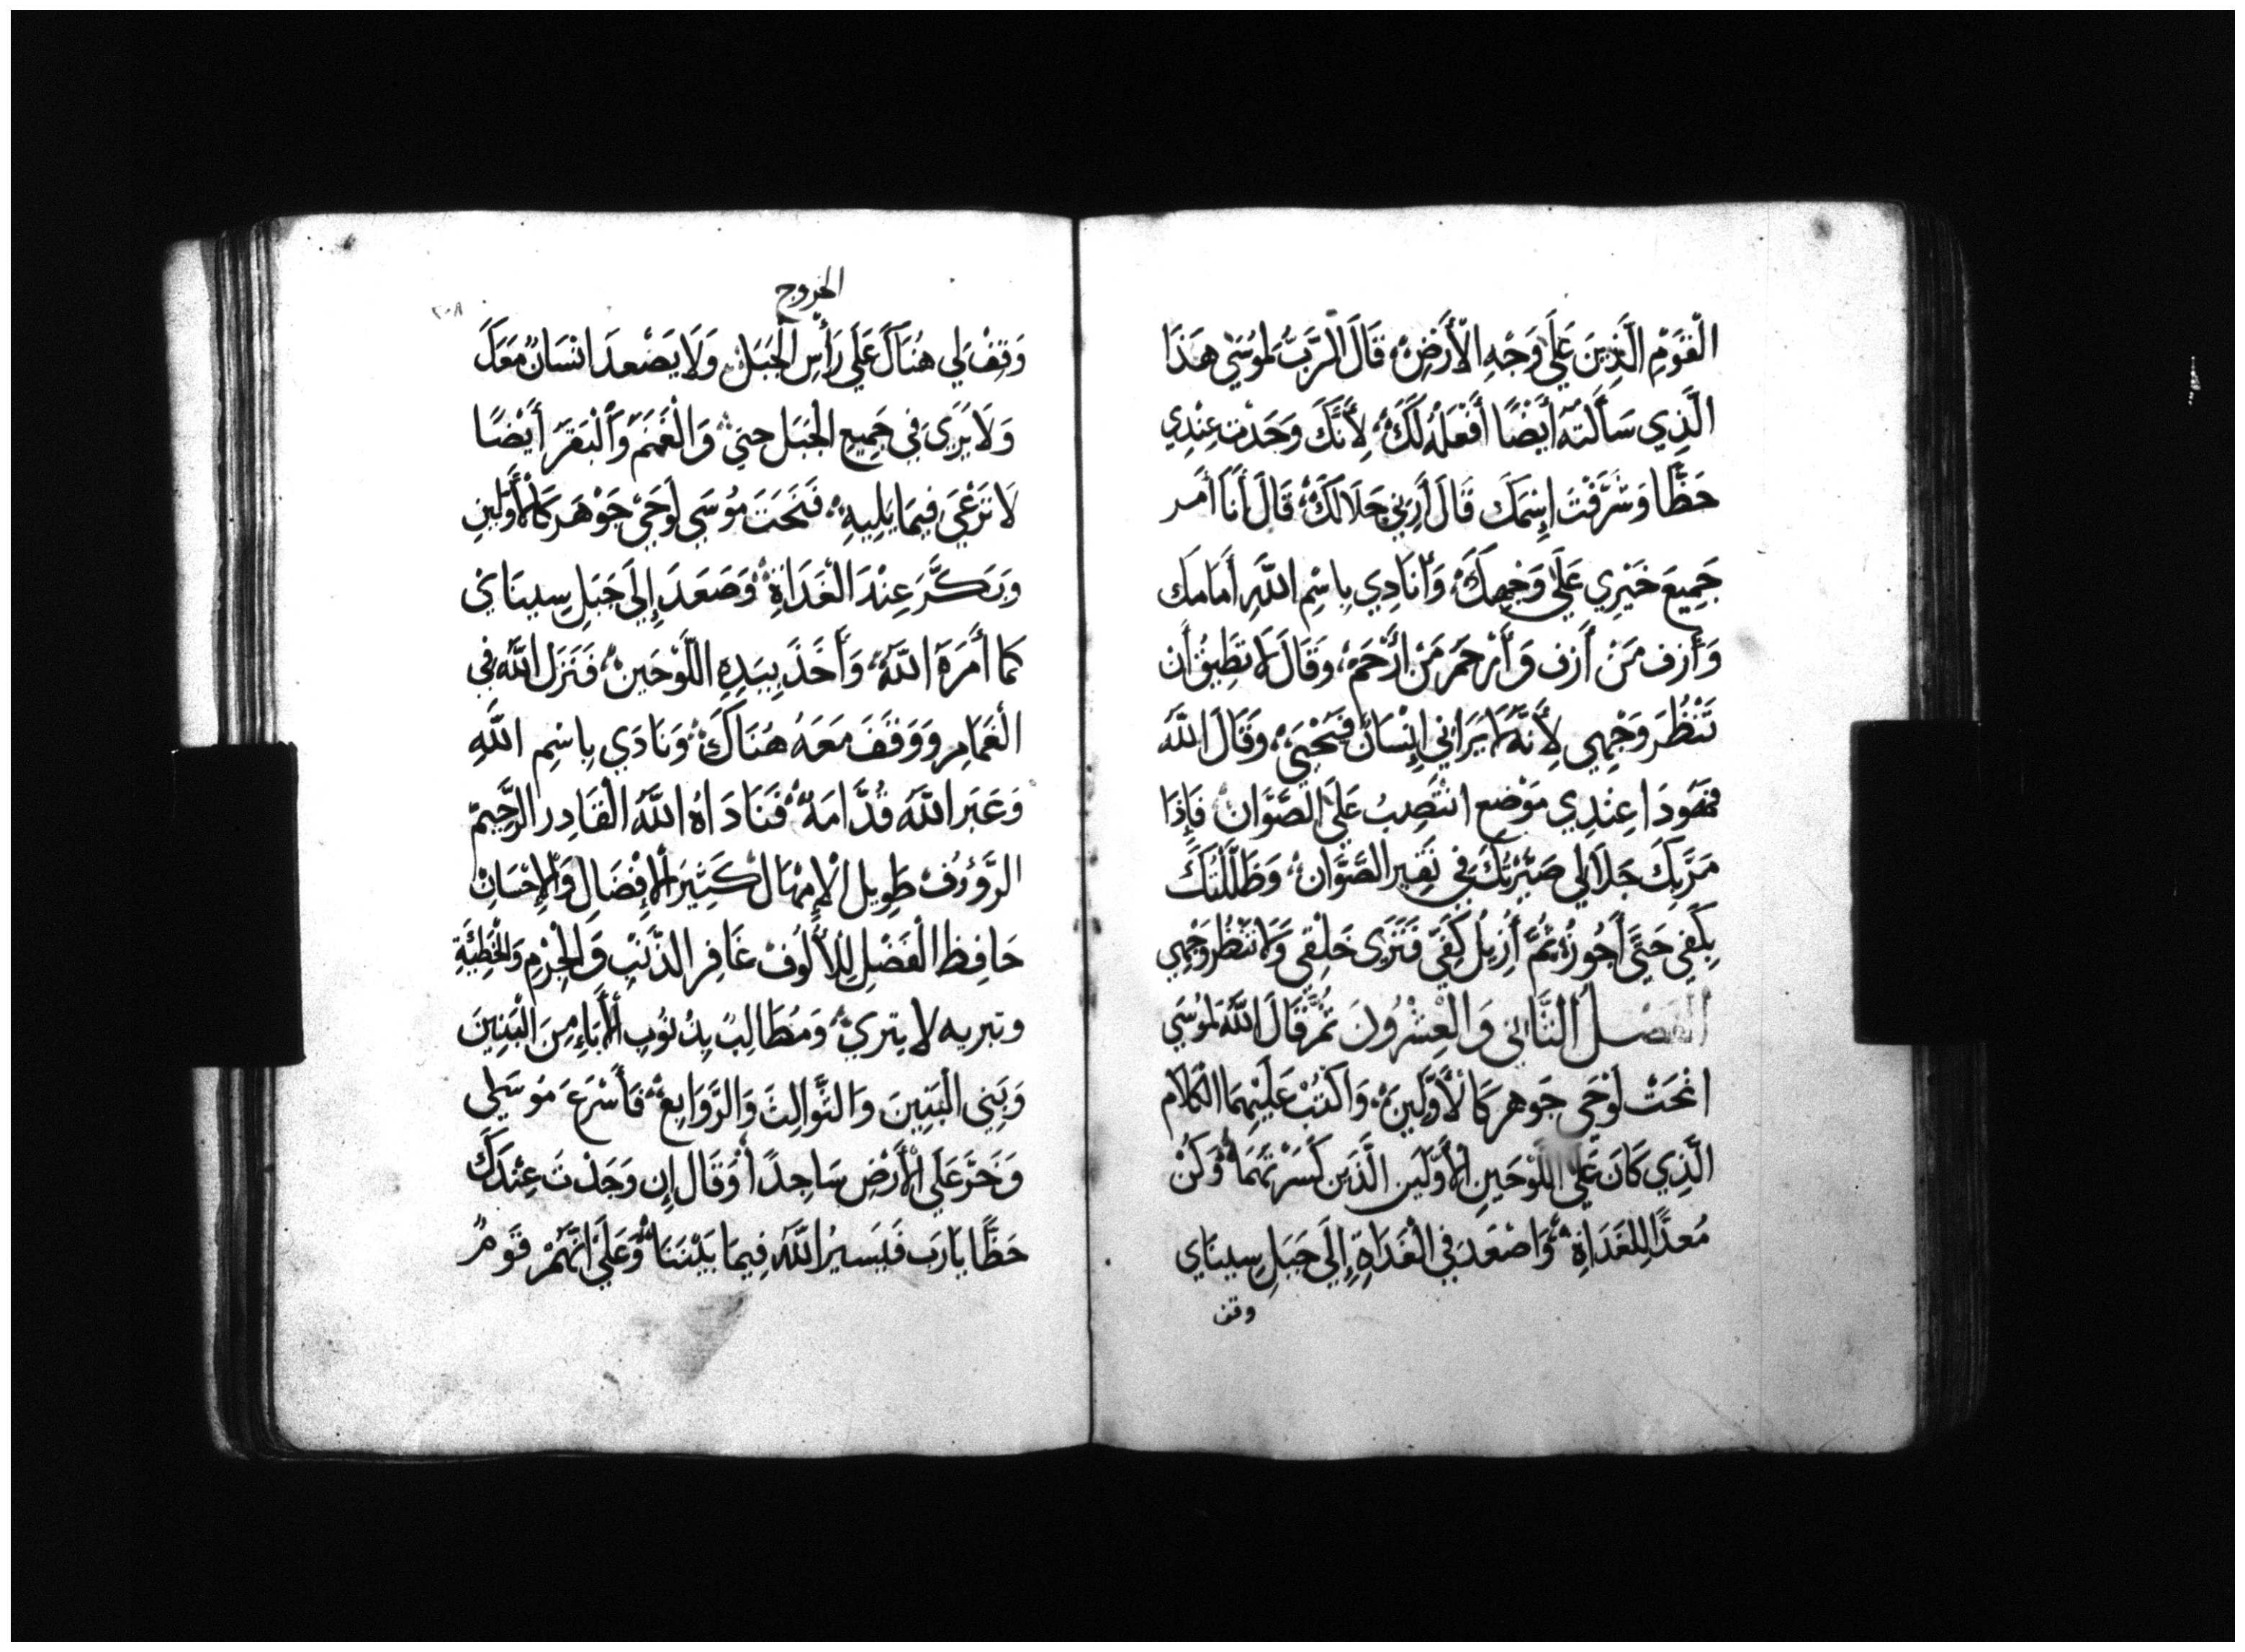 الْقَوْمِ الَّذِينَ عَلَى وَجْهِ الْأَرْضِ، قَالَ الرَّبُّ لِمُوسَى هَذَا
الَّذِي سَأَلْتَهُ أَيْضًا أَفْعَلُهُ لَكَ، لِأَنَّكَ وَجَدْتَ عِنْدِي
حَظًّا وَشَرَّفْتَ إِسْمَكَ قَالَ أَرِنِي جَلَالَكَ، قَالَ أَنَا أَمر
جَمِيعَ خَيْرِي عَلَى وَجْهِكَ، وَأُنَادِي بِاسْمِ اللَّهِ أَمَامَكَ
وَأَرَف مَنْ أَرَف وَأَرْحَمر مَنْ ارْحَمَ، وَقَالَ لَا تَطِيقُ أَن
تَنْظُرَ وَجْهِي لِأَنَّهُ لَا يَرَانِي إِنْسَانٌ فَيَحْيَى، وَقَالَ اللَّهُ
فَهُوَذَا عِنْدِي مَوْضِع انْتَصِبُ عَلَى الصَّوَّانِ فَإِذَا
مَرَّ بِكَ جَلَالِي صَيَّرْتُكَ فِي نَقِيرِ الصَّوَّانِ، وَظَلَّلْتُكَ
بِكَفِي حَتَّى أَجُوزُ، ثُمَّ أُزِيلُ كَفِّي فَتَرَى خَلْفِي وَلَا تَنْظُر وَجْهِي
الفَصْلُ الثَّانِي وَالْعِشْرُونَ ثُمَّ قَالَ اللَّهُ لِمُوسَى
انْحَتْ لَوْحَي جَوهر كَالْأَوَّلَيْنِ، وَاكْتُبْ عَلَيْهِمَا الْكَلَام
الَّذِي كَانَ عَلَى اللَّوْحَيْنِ الْأَوَّلَيْنِ الَّذَيْنِ كَسَرْتَهُمَا، وَكُنْ
مُعدًّا لِلْغَدَاةِ، وَاصْعَدَ فِي الْغَدَاةِ إِلَى جَبَلِ سِينَايِ
وقف
الخروج
٢٠٨
وَقِفْ لِي هُنَاكَ عَلَى رَأْسِ الْجَبَلِ، وَلَا يَصْعدَ انْسَانٌ مَعَكَ
وَلَا يَرَى فِي جَمِيعِ الْجَبَلِ حَتَى، وَالْغَنَمَ وَالْبَقَرَ أَيْضًا
لَا تَرْعَى فِيمَا يَلِيهِ، فَنَحَتَ مُوسَى لَوحَيْ جَوْهَر كَالْأَوَّلَيْنِ
وَبَكَّرَ عِنْدَ الْغَدَاةِ، وَصَعَدَ إِلَى جَبَلِ سِينَايْ
كَمَا أَمَرَهُ اللَّهُ، وَأَخَذَ بِيَدِهِ اللَّوْحَيْنِ، فَنَزَلَ اللَّهُ فِي
الْغَمَامِ وَوَقَفَ مَعَهُ هُنَاكَ، وَنَادَى بِاسْمِ اللَّهِ
وَعَبَر اللَّهُ قُدَّامَهُ، فَنَادَاهُ اللَّهُ الْقَادِر الرَّحِيمْ
الرَّؤُوفُ طَوِيل الْإِمْهَالِ كَثِيرَ الْإِفْضَالِ وَالْإِحْسَانِ
حَافِظ الْفَضْلِ لِلْأُلُوفْ غَافِر الذَّنْبِ وَالْجُرْمِ وَالْخَطِيَّةِ
وتبريه لا يبري، وَمُطَالِبُ بِذُنُوبِ الْأَبَاءِ مِنَ الْبَنِينَ
وَبَنِي الْبَنِينَ وَالثَّوَالِثَ وَالرَّوَابِعْ، فَأَسْرَعَ مُوسَى
وَخَرَّ عَلَى الْأَرْضِ سَاجِدًا، وَقَالَ إِن وَجَدْتَ عِنْدَكَ
حَظًّا يَارَب فَيَسِيرُ اللَّهُ فِيمَا بَيْنَنَا، وَعَلَى انَّهُمْ قَومٌ